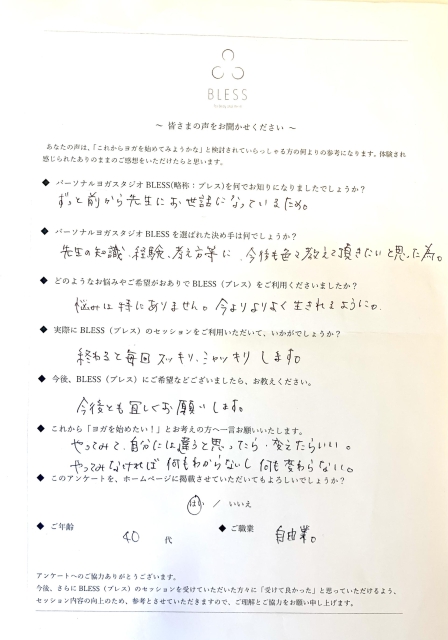 BLESS
～ 皆さまの声をお聞かせください ～
あなたの声は、「これからヨガを始めてみようかな」と検討されていらっしゃる方の何よりの参考になります。体験され
感じられたありのままのご感想をいただけたらと思います。
◆ パーソナルヨガスタジオ BLESS(略称：ブレス)を何でお知りになりましたでしょうか？
ずっと前から先生にお世話になっているため。
◆ パーソナルヨガスタジオ BLESS を選ばれた決め手は何でしょうか？
先生の知識、経験、考え方等に、今後も色々教えて頂きたいと思った為。
◆ どのようなお悩みやご希望がおありで BLESS（ブレス）をご利用くださいましたか？
悩みは特にありません。今よりよりよく生きれるように。
◆ 実際に BLESS（ブレス）のセッションをご利用いただいて、いかがでしょうか？
終わると毎回スッキリ、シャッキリします。
◆ 今後、BLESS（ブレス）にご希望などございましたら、お教えください。
今後とも宜しくお願いします。
◆ これから「ヨガを始めたい！」とお考えの方へ一言お願いいたします。
やってみて、自分には違うと思ったら、変えたらいい。
やってみなければ何もわからないし何も変わらない。
◆ このアンケートを、ホームページに掲載させていただいてもよろしいでしょうか？
はい ／ いいえ
◆ ご年齢 ◆ ご職業
40 代 自由業。
アンケートへのご協力ありがとうございます。
今後、さらに BLESS（ブレス）のセッションを受けていただいた方々に「受けて良かった」と思っていただけるよう、
セッション内容の向上のため、参考とさせていただきますので、ご理解とご協力をお願い申し上げます。